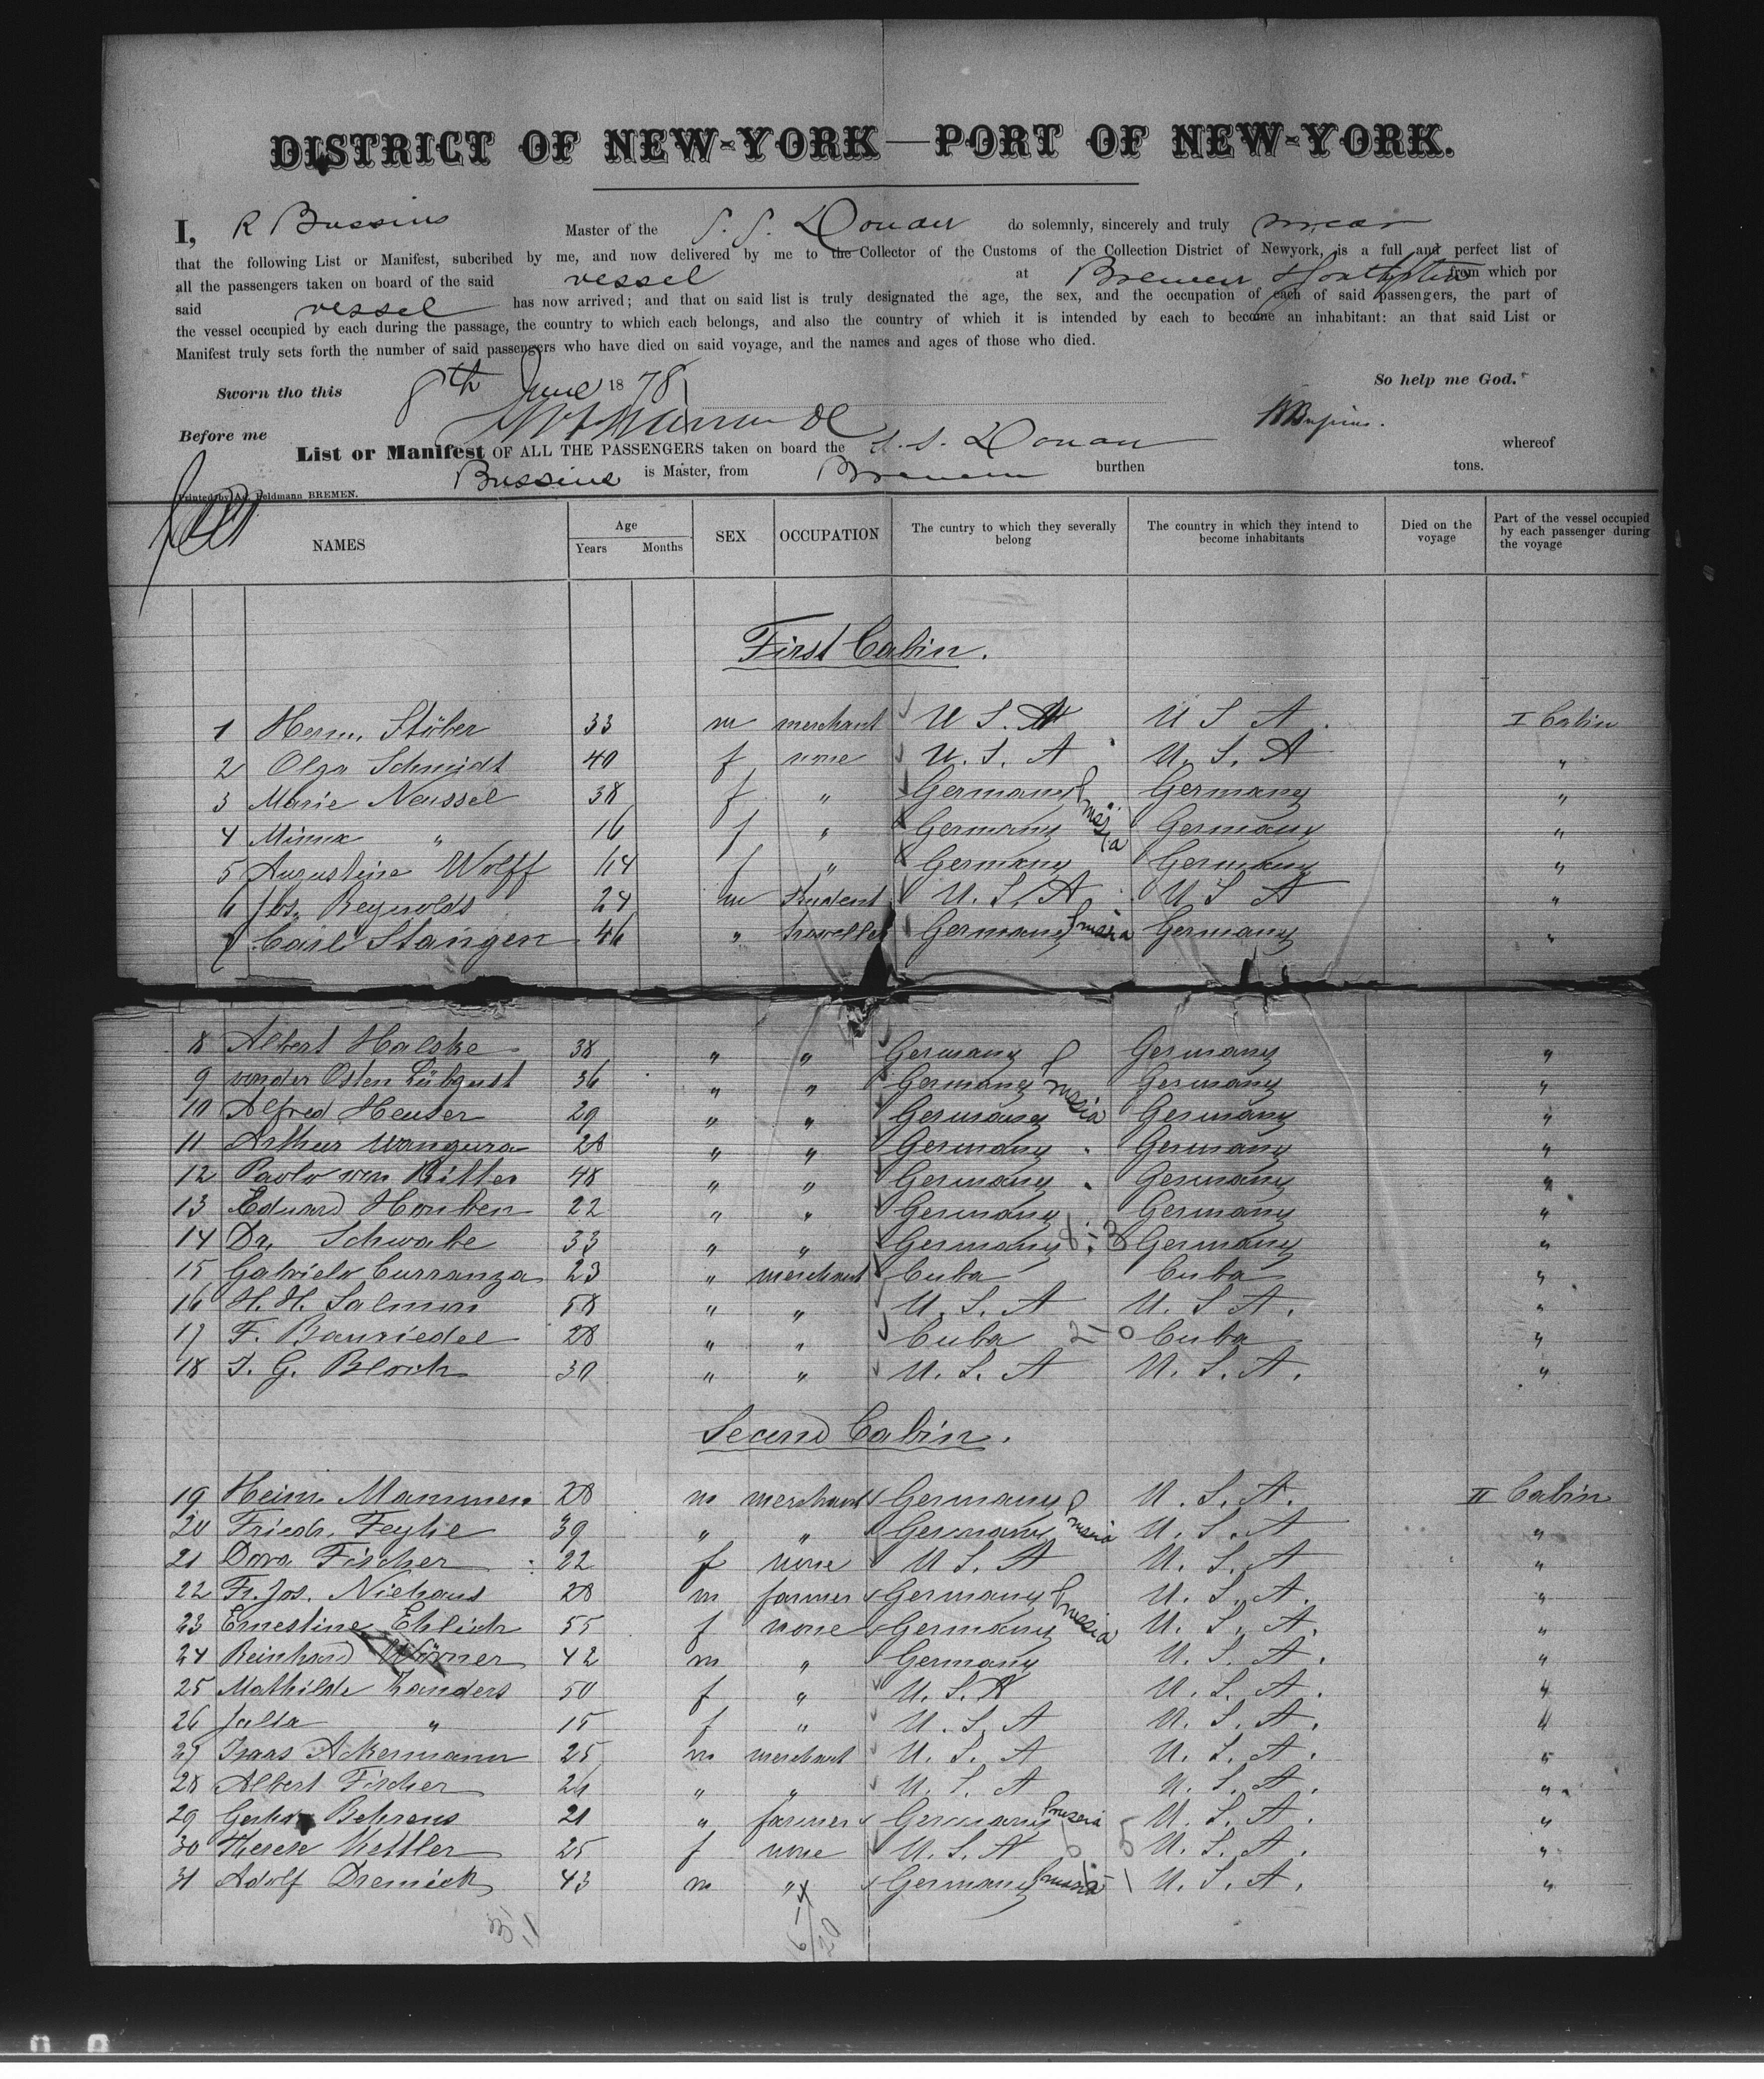 DISTRICT OF NEW-YORK—PORT OF NEW-YORK.
I, R Bussius Master of the S. S. Donau do solemnly, sincerely and truly swear
that the following List or Manifest, subcribed by me, and now delivered by me to the Collector of the Customs of the Collection District of Newyork, is a full and perfect list of
all the passengers taken on board of the said vessel at Bremen from which por
said vessel has now arrived; and that on said list is truly designated the age, the sex, and the occupation of each of said passengers, the part of
the vessel occupied by each during the passage, the country to which each belongs, and also the country of which it is intended by each to become an inhabitant: an that said List or
Manifest truly sets forth the number of said passengers who have died on said voyage, and the names and ages of those who died.
Sworn tho this 8th June 1878 So help me God.
Before me
List or Manifest OF ALL THE PASSENGERS taken on board the S. S. Donau whereof
Bussius is Master, from Bremen burthen tons.
Printed by Ad. Feldmann BREMEN.
NAMES Age Years Months SEX OCCUPATION The cuntry to which they severally belong The country in which they intend to become inhabitants Died on the voyage Part of the vessel occupied by each passenger during the voyage
First Cabin.
1 Herm. Stöber 33 m merchant U S. A U S A. I Cabin
2 Olga Schmidt 40 f none U. S. A U. S. A "
3 Marie Neussel 38 f " Germany Prussia Germany "
4 Minna " 16 f " Germany Germany "
5 Augustine Wolff 14 f " Germany Germany "
6 Jos. Reynolds 24 m Student U. S. A U S A "
7 Carl Stangen 46 " Germany Prussia Germany "
8 Albert Halske 38 " " Germany Prussia Germany "
9 von der Osten 36 " " Germany Germany "
10 Alfred Heuser 29 " " Germany Germany "
11 Arthur Wangura 28 " " Germany Germany "
12 Paolo von Ritter 48 " " Germany Germany "
13 Eduard Houben 22 " " Germany Germany "
14 Dr. Schwabe 33 " " Germany Germany "
15 Gabriele Curranza 23 " merchant Cuba Cuba "
16 H. H. Salmon 58 " " U. S. A U. S A. "
17 F. Bauriedel 28 " " Cuba 2-0 Cuba "
18 J. G. Bloch 30 " " U. S. A U. S. A. "
Second Cabin.
19 Heinr. Mammen 28 m merchant Germany Prussia U. S. A. II Cabin
20 Friedr. 39 " " Germany U. S. A "
21 Dora Fischer 22 f none U S. A U. S. A "
22 Fr. Jos. Niehaus 28 m farmer Germany Prussia U. S. A. "
23 Ernestine Ehlich 55 f none Germany U. S. A. "
24 Reinhard Wörner 42 m " Germany U. S. A. "
25 Mathilde Zanders 50 f " U. S. A U. S. A. "
26 Julia " 15 f " U. S. A U. S. A. "
27 Isaas Ackermann 25 m merchant U. S. A U. S. A. "
28 Albert Fischer " " U. S. A U. S. A. "
29 Behrens 21 " farmer Germany Prussia U. S. A. "
30 Therese Kettler 25 f none U. S. A U. S. A. "
31 Adolf Dremick 43 m " Germany Prussia U. S. A. "